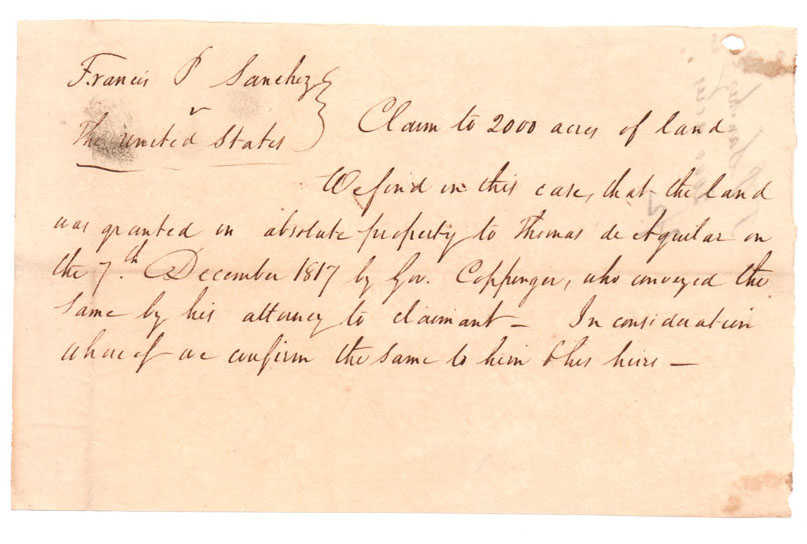 Francis P Sanchez
v
The United States } Claim to 2000 acres of land
We find in this case, that the land
was granted in absolute property to Thomas de Aguilar on
the 7.th December 1817 by Gov. Coppinger, who conveyed the
same by his attorney to claimant — In consideration
whereof we confirm the same to him & his heirs —